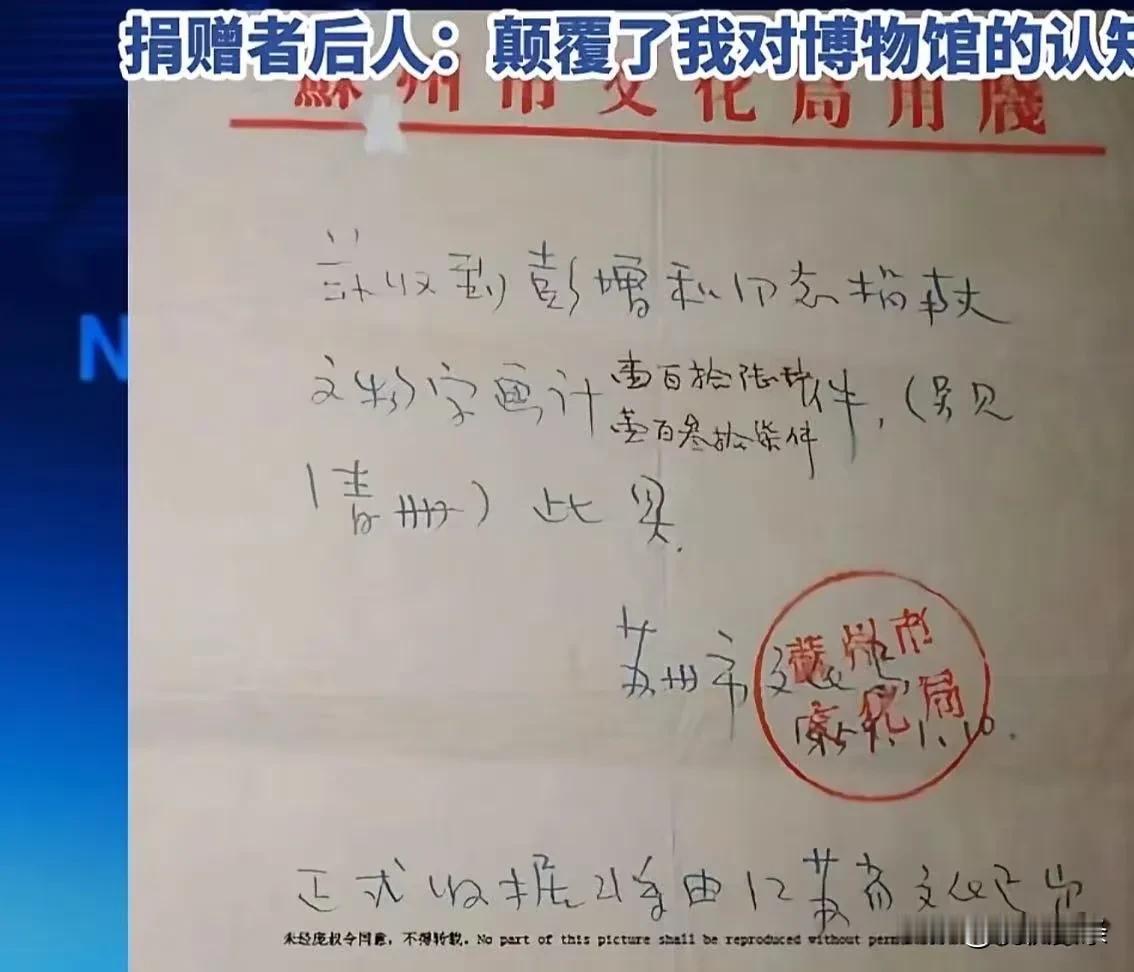 捐赠者后人：颠覆了我对博物馆的认知
蘇州市文化局用牋
兹收到彭增和同志捐献
文物字画计壹百拾陆件，（另见
壹百叁拾柒件
清册）此具
N
苏州市文化局
蘇州市文化局
1959.1.10.
正式收据将由江苏省文化局
未经庞叔令同意，不得转载。No part of this picture shall be reproduced without